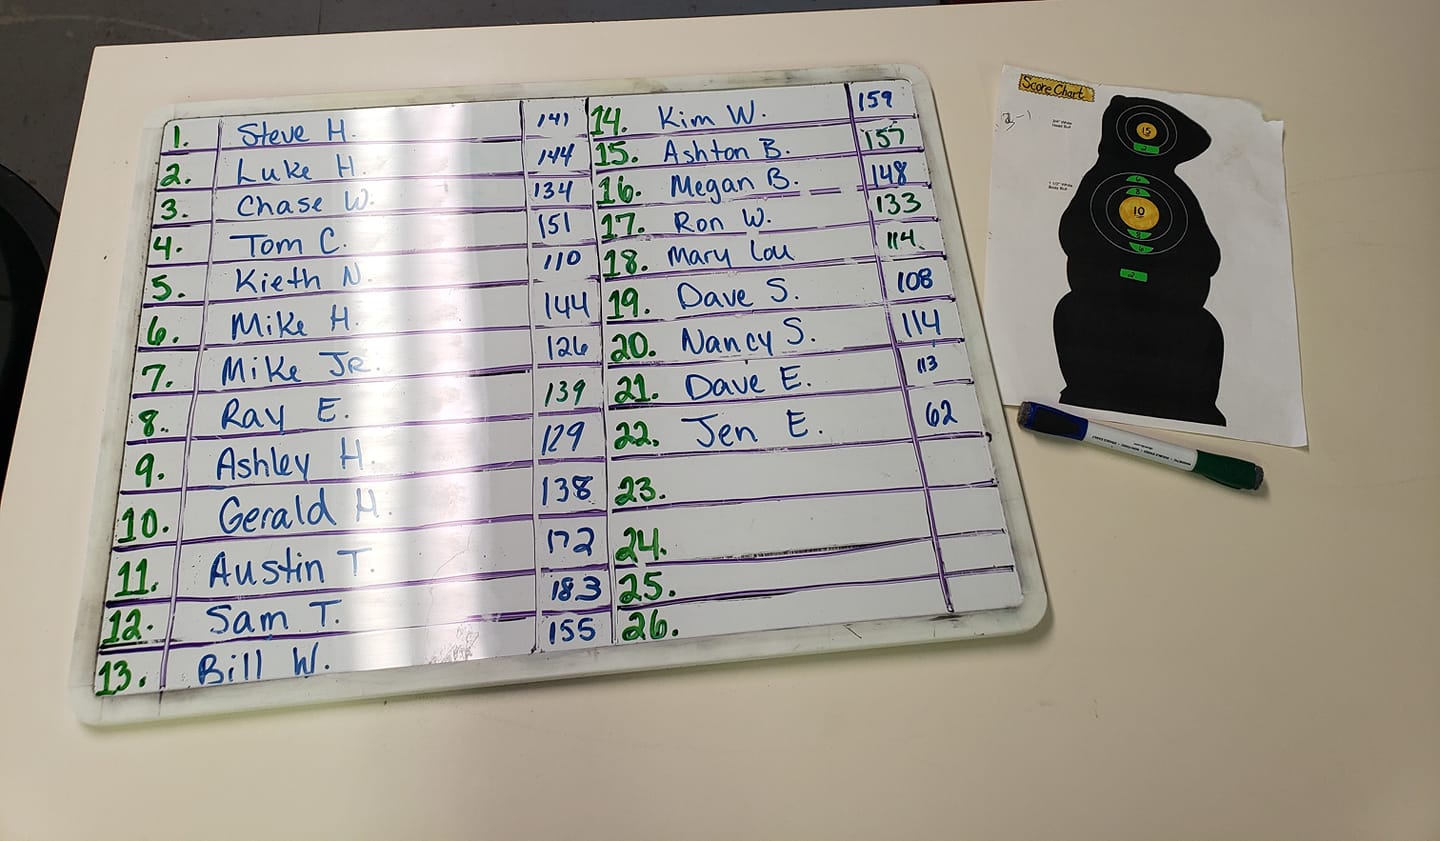 1. Steve H. 141
2. Luke H. 144
3. Chase W. 134
4. Tom C. 151
5. Kieth N. 110
6. Mike H. 144
7. Mike Jr. 126
8. Ray E. 139
9. Ashley H. 129
10. Gerald H. 138
11. Austin T. 172
12. Sam T. 183
13. Bill W. 155
14. Kim W. 159
15. Ashton B. 157
16. Megan B. 148
17. Ron W. 133
18. Mary Lou 114
19. Dave S. 108
20. Nancy S. 114
21. Dave E. 113
22. Jen E. 62
23.
24.
25.
26.
Score Chart
3/4" White
Head Bull
15
2
1 1/2" White
Body Bull
6
8
10
8
6
2